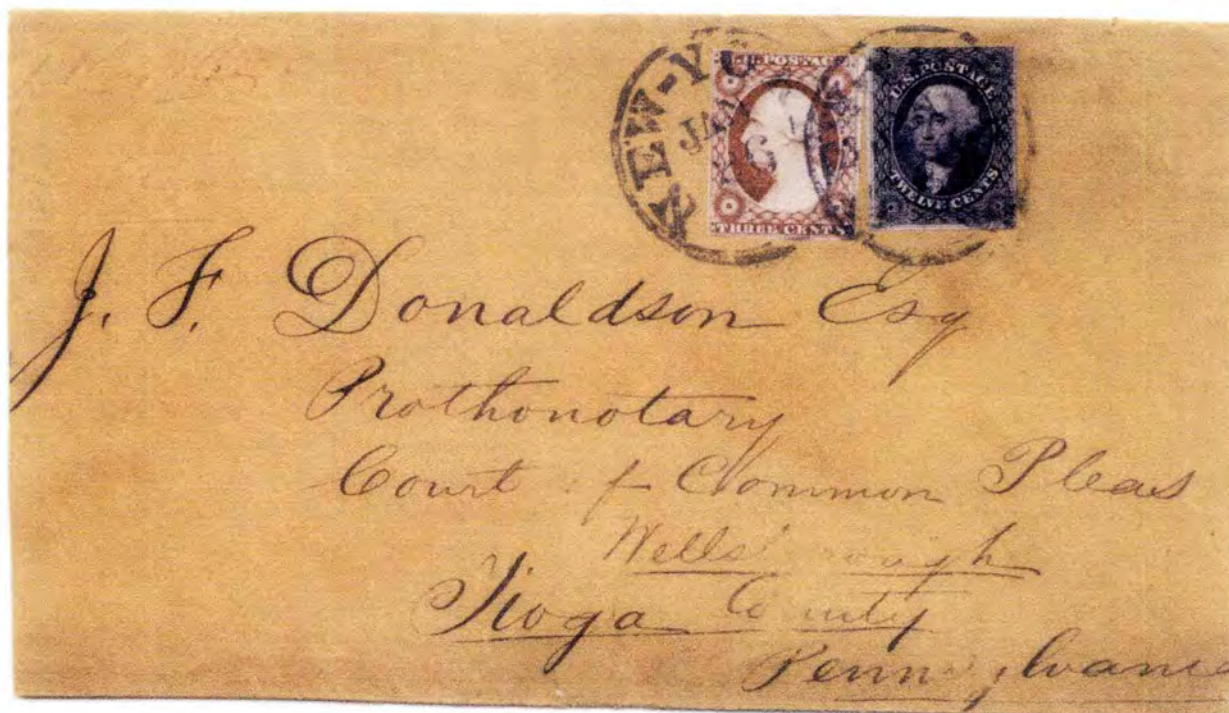 NEW-YO
JAN
6
U.S. POSTAGE
THREE CENTS
U.S. POSTAGE
TWELVE CENTS
J. F. Donaldson Esq
Prothonotary
Court of Common Pleas
Wells rough
Tioga County
Pennsylvania